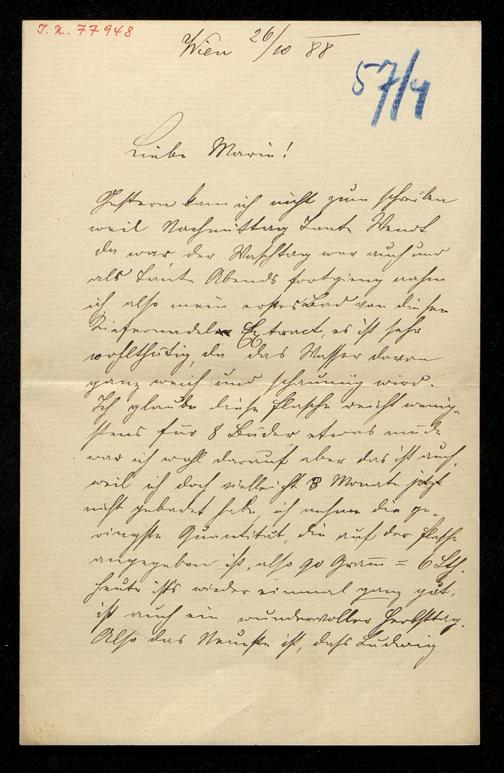 I. N. 77948
Wien 26/10 88
57/4
Liebe Marie!
Gestern kam ich nicht zum schreiben
weil Nachmittag Tante Wendt
da war, der Waschtag war auch und
als Tante Abends fortgieng nahm
ich also mein erstes Bad von diesen
Kiefernadel Extract, es ist sehr
wohlthätig, da das Wasser davon
ganz weich und schaumig wird.
Ich glaube diese Flasche reicht wenig-
stens für 8 Bäder etwas müde
war ich wohl darauf aber das ist auch
weil ich doch vielleicht 3 Monate jetzt
nicht gebadet habe, ich nehme die ge-
ringste Quantität, die auf der Flasche
angegeben ist, also 90 Gram̅ = 6 Lth.
Heute ists wieder einmal ganz gut,
ist auch ein wundervoller Herbsttag.
Also das Neueste ist, daß Ludwig